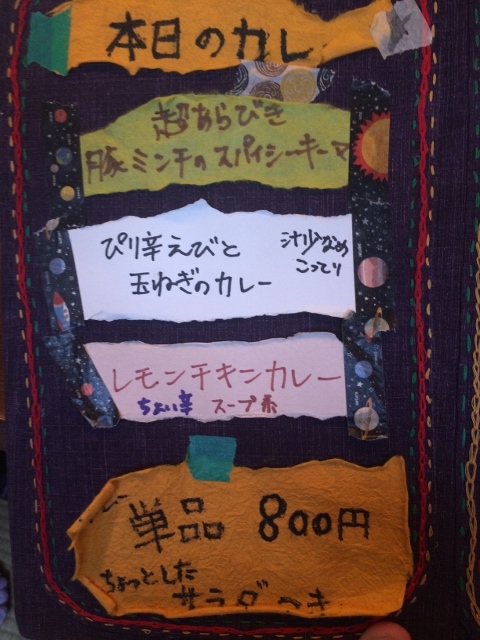 本日のカレ
超あらびき
豚ミンチのスパイシーキーマ
ぴり辛えびと
玉ねぎのカレー
汁少なめ
こってり
レモンチキンカレー
ちょい辛 スープ系
単品 800円
ちょっとした
サラダつき